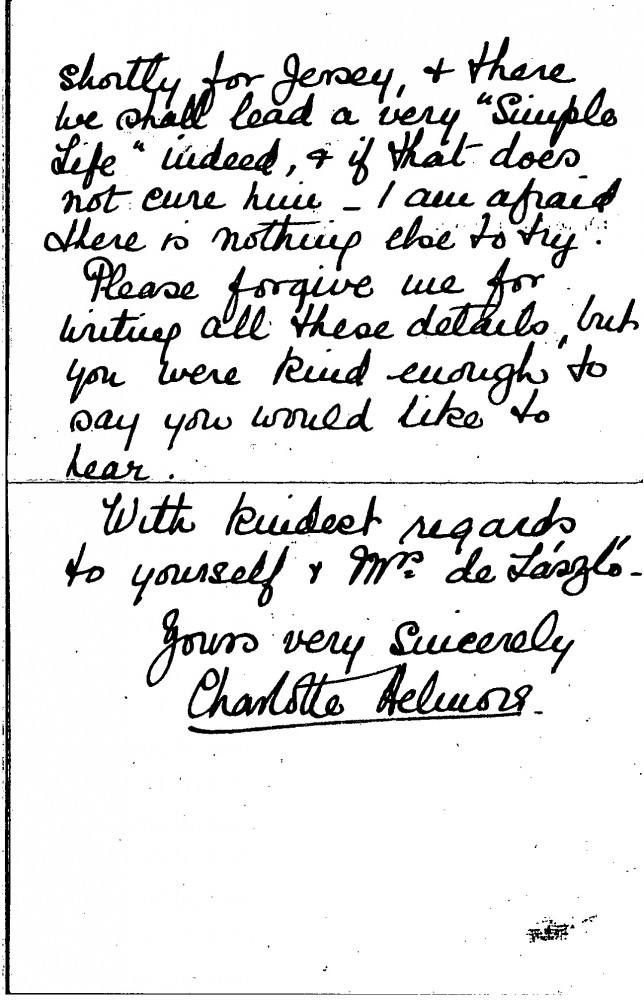 shortly for Jersey, & there
we shall lead a very "Simple
Life" indeed, & if that does
not cure him – I am afraid
there is nothing else to try.
Please forgive me for
writing all these details, but
you were kind enough to
say you would like to
hear.
With kindest regards
to yourself & Mrs. de László –
Yours very Sincerely
Charlotte